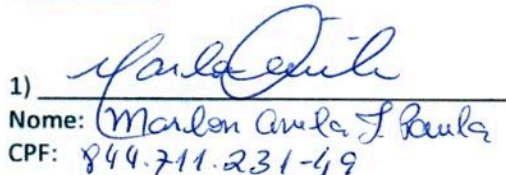 1)
Nome: Marlon Avila F. Paula
CPF: 844.711.231-49